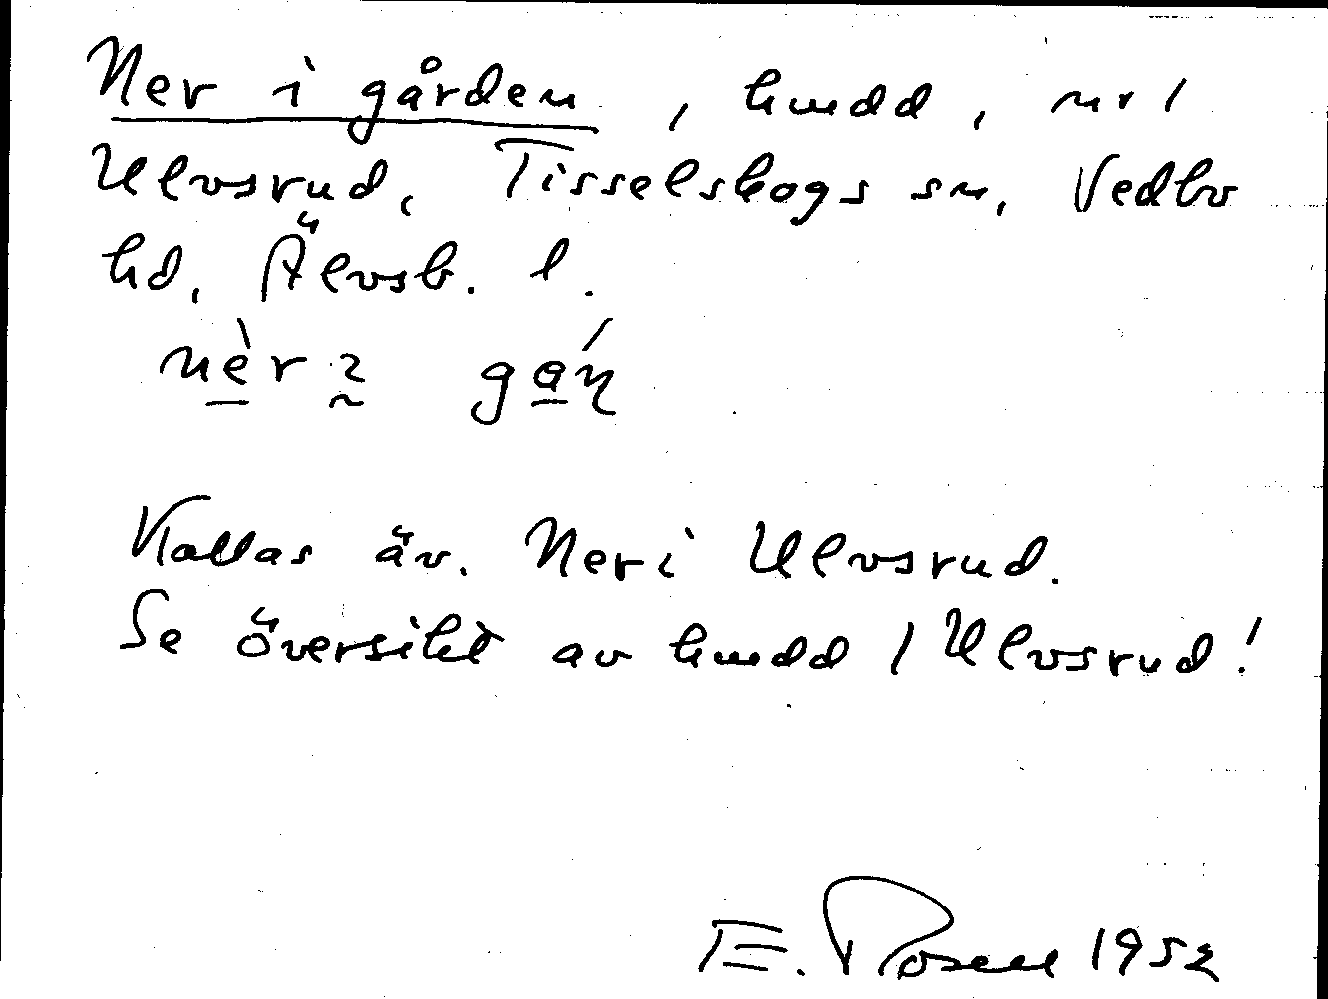 Ner i gården, hmdd, nr 1
Ulvsrud, Tisselskogs sn, Vedbo
hd, Älvsb. l.
Kallas äv. Ner i Ulvsrud.
Se översikt av hmdd 1 Ulvsrud!
E. Rosell 1952